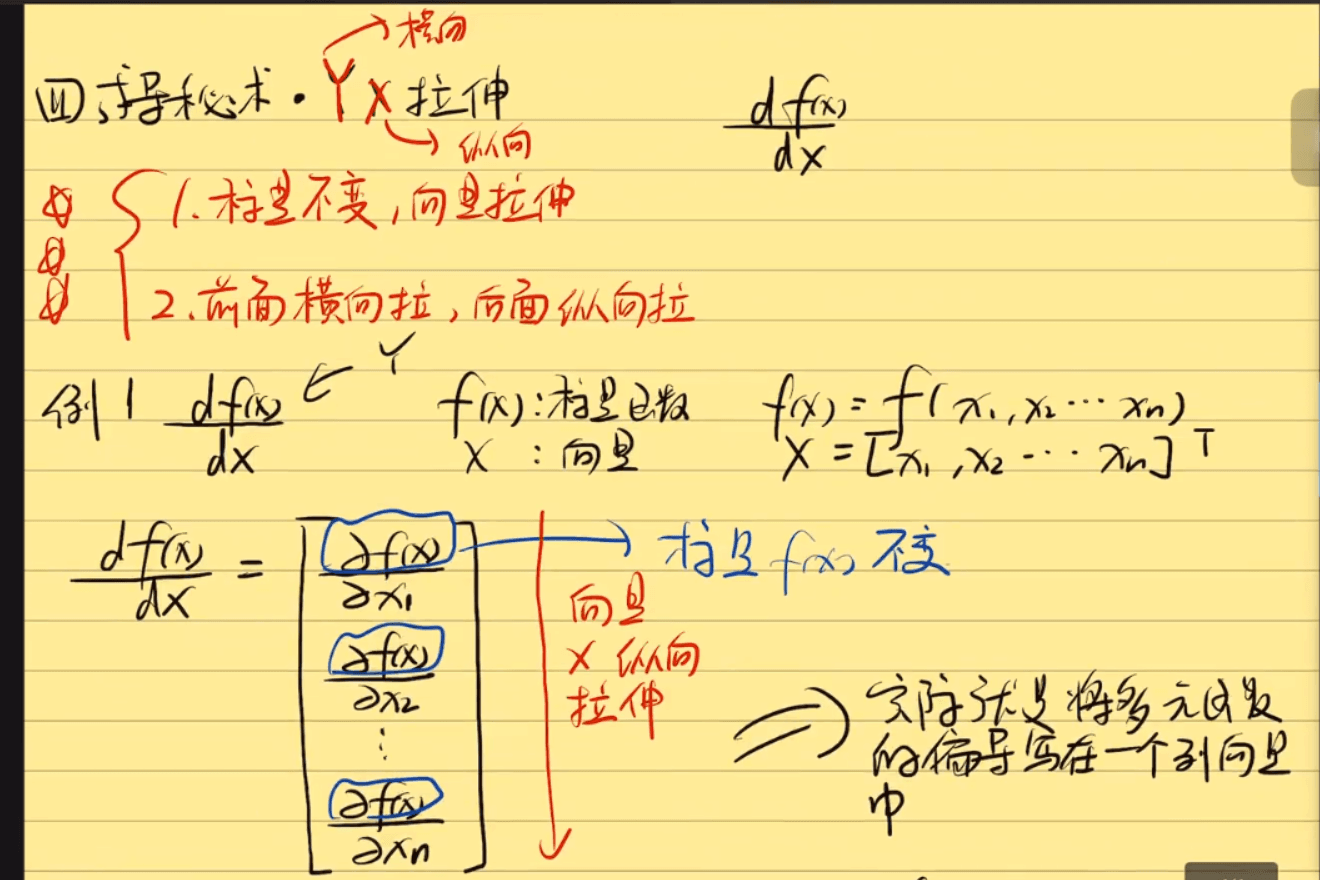 横向
四、求导秘术·YX拉伸
纵向
df(x)
dx
1.标量不变,向量拉伸
2.前面横向拉,后面纵向拉
Y
例1 df(x)/dx f(x):标量函数 f(x)=f(x1,x2…xn)
X :向量 X=[x1,x2…xn]T
df(x)/dx = [∂f(x)/∂x1
∂f(x)/∂x2
⋮
∂f(x)/∂xn]
标量f(x)不变
向量
X 纵向
拉伸
实际就是将多元函数
的偏导写在一个列向量
中